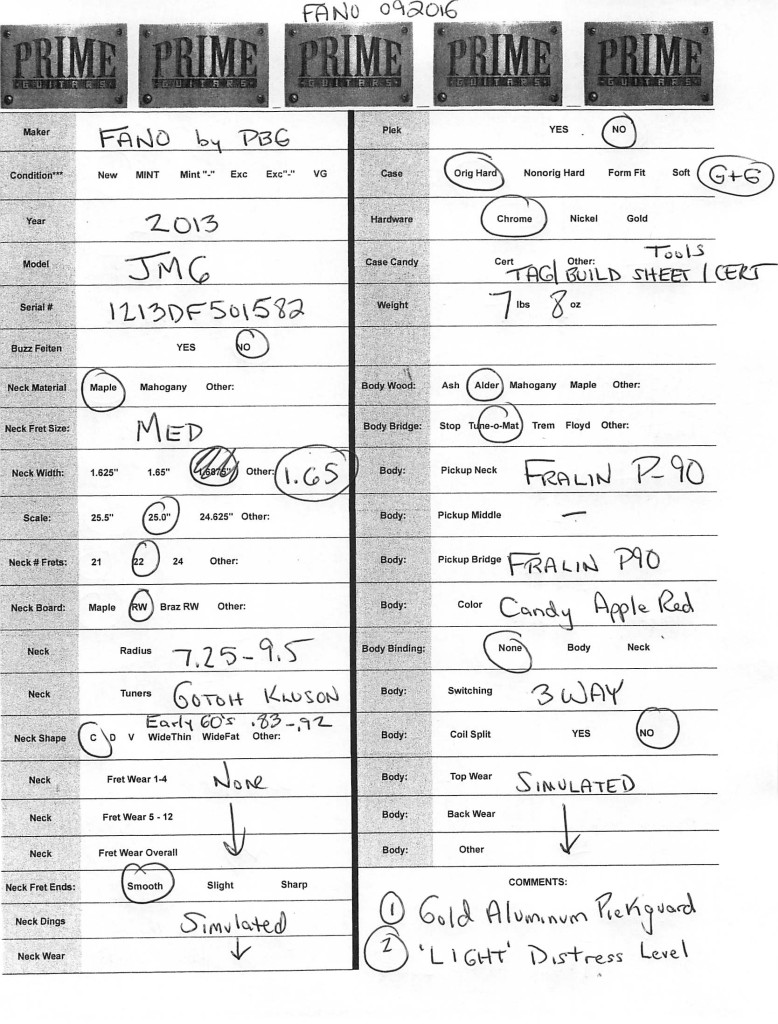 FANO 092016
PRIME GUITARS PRIME GUITARS PRIME GUITARS PRIME GUITARS PRIME GUITARS
Maker FANO by DBG
Condition*** New MINT Mint "-" Exc Exc"-" VG
Year 2013
Model JM6
Serial # 1213DF501582
Buzz Feiten YES NO
Neck Material Maple Mahogany Other:
Neck Fret Size: MED
Neck Width: 1.625" 1.65" 1.6875" Other: 1.65
Scale: 25.5" 25.0" 24.625" Other:
Neck # Frets: 21 22 24 Other:
Neck Board: Maple RW Braz RW Other:
Neck Radius 7.25-9.5
Neck Tuners GOTOH KLUSON
Early 60's .83-.92
Neck Shape C D V WideThin WideFat Other:
Neck Fret Wear 1-4 None
Neck Fret Wear 5 - 12
Neck Fret Wear Overall
Neck Fret Ends: Smooth Slight Sharp
Neck Dings Simulated
Neck Wear
Plek YES NO
Case Orig Hard Nonorig Hard Form Fit Soft G+G
Hardware Chrome Nickel Gold
Case Candy Cert Other: Tools
TAG/BUILD SHEET/CERT
Weight 7 lbs 8 oz
Body Wood: Ash Alder Mahogany Maple Other:
Body Bridge: Stop Tune-o-Mat Trem Floyd Other:
Body: Pickup Neck FRALIN P-90
Body: Pickup Middle —
Body: Pickup Bridge FRALIN P90
Body: Color Candy Apple Red
Body Binding: None Body Neck
Body: Switching 3 WAY
Body: Coil Split YES NO
Body: Top Wear SIMULATED
Body: Back Wear
Body: Other
COMMENTS:
1 Gold Aluminum Pickguard
2 'LIGHT' Distress Level